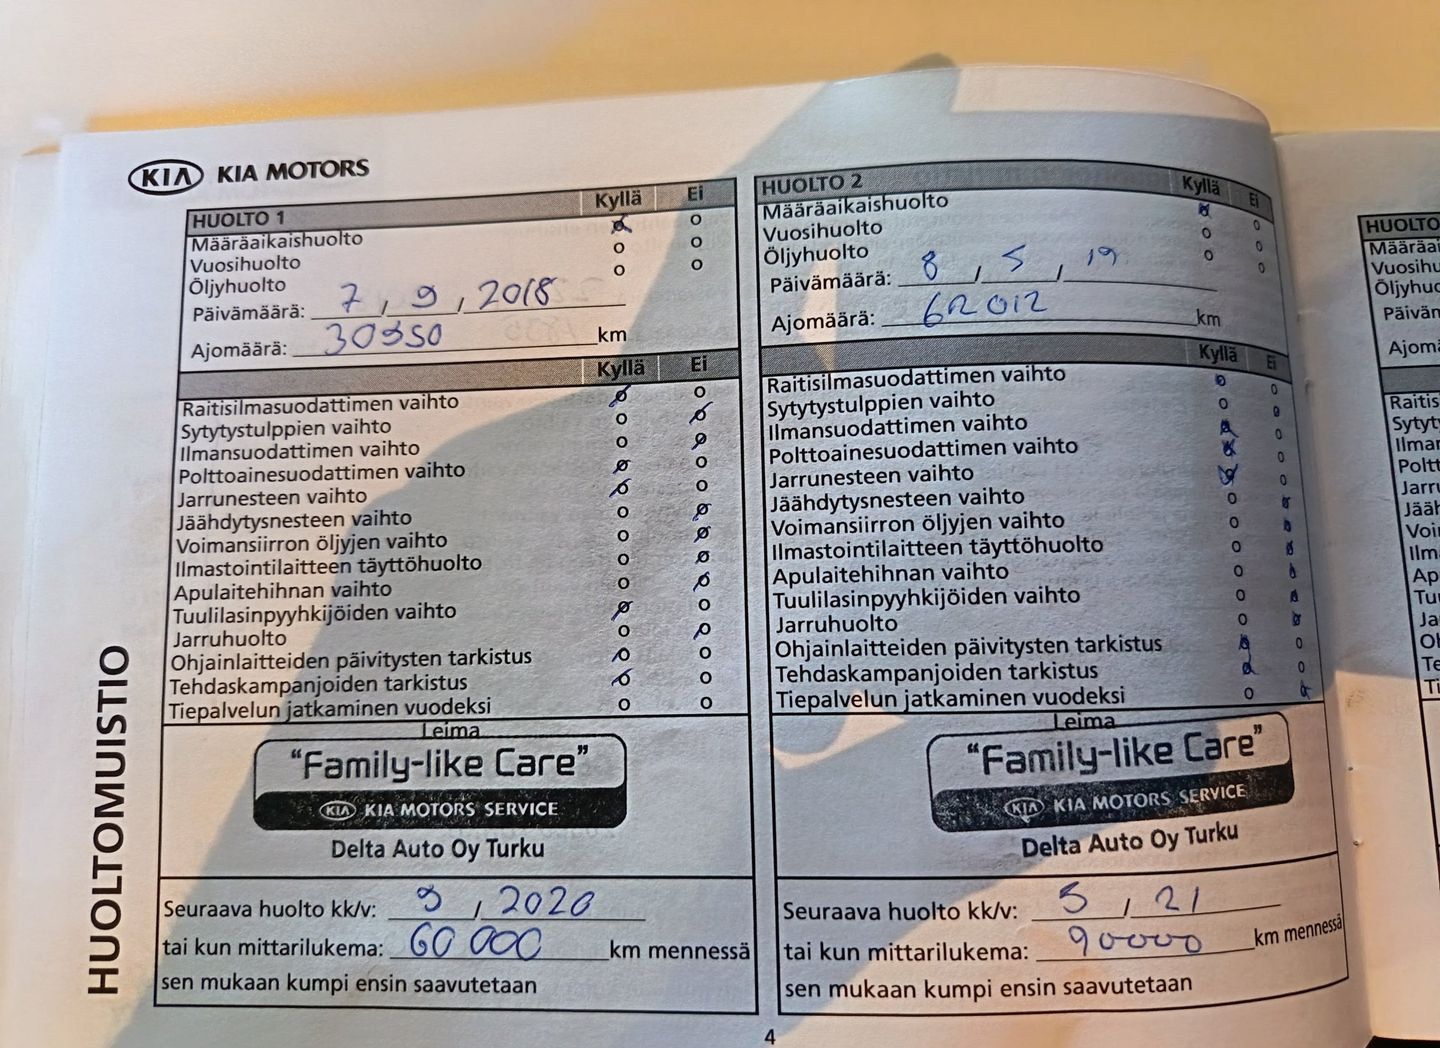 KIA KIA MOTORS
HUOLTO 1 Kyllä Ei
Määräaikaishuolto o o
Vuosihuolto o o
Öljyhuolto o o
Päivämäärä: 7 / 9 / 2018
Ajomäärä: km
Kyllä Ei
Raitisilmasuodattimen vaihto o o
Sytytystulppien vaihto o o
Ilmansuodattimen vaihto o o
Polttoainesuodattimen vaihto o o
Jarrunesteen vaihto o o
Jäähdytysnesteen vaihto o o
Voimansiirron öljyjen vaihto o o
Ilmastointilaitteen täyttöhuolto o o
Apulaitehihnan vaihto o o
Tuulilasinpyyhkijöiden vaihto o o
Jarruhuolto o o
Ohjainlaitteiden päivitysten tarkistus o o
Tehdaskampanjoiden tarkistus o o
Tiepalvelun jatkaminen vuodeksi o o
Leima
"Family-like Care"
KIA KIA MOTORS SERVICE
Delta Auto Oy Turku
Seuraava huolto kk/v: 9 / 2020
tai kun mittarilukema: 60 000 km mennessä
sen mukaan kumpi ensin saavutetaan
HUOLTO 2 Kyllä Ei
Määräaikaishuolto o o
Vuosihuolto o o
Öljyhuolto o o
Päivämäärä: 8 / 5 / 19
Ajomäärä: 62012 km
Kyllä Ei
Raitisilmasuodattimen vaihto o o
Sytytystulppien vaihto o o
Ilmansuodattimen vaihto o o
Polttoainesuodattimen vaihto o o
Jarrunesteen vaihto o o
Jäähdytysnesteen vaihto o o
Voimansiirron öljyjen vaihto o o
Ilmastointilaitteen täyttöhuolto o o
Apulaitehihnan vaihto o o
Tuulilasinpyyhkijöiden vaihto o o
Jarruhuolto o o
Ohjainlaitteiden päivitysten tarkistus o o
Tehdaskampanjoiden tarkistus o o
Tiepalvelun jatkaminen vuodeksi o o
Leima
"Family-like Care"
KIA KIA MOTORS SERVICE
Delta Auto Oy Turku
Seuraava huolto kk/v: 5 / 21
tai kun mittarilukema: 90000 km mennessä
sen mukaan kumpi ensin saavutetaan
HUOLTOMUISTIO
4
HUOLTO